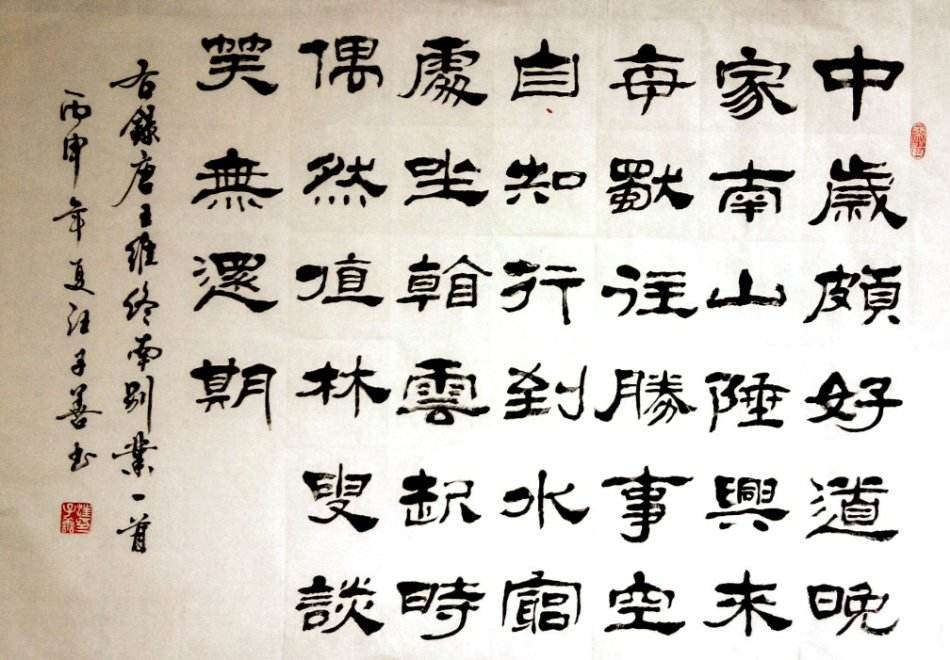 中歲頗好道晚
家南山陲興來
每獨往勝事空
自知行到水窮
處坐看雲起時
偶然值林叟談
笑無還期
右錄唐王維終南別業一首
丙申年夏汪子善书